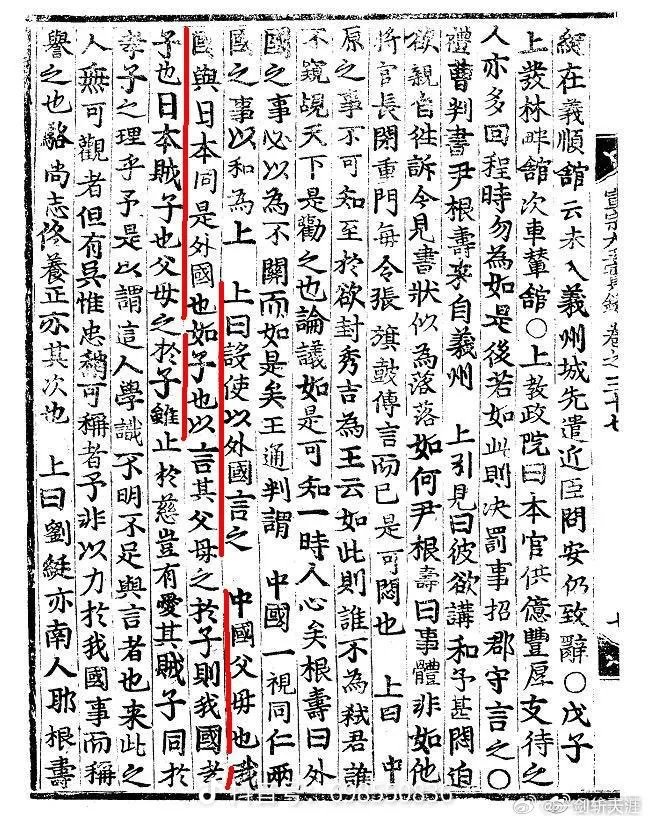 宣宗大王實錄 卷之三十七
綎在義順館云未入義州城先遣近臣問安仍致辭○戊子
上發林畔舘次車輦舘○上教政院曰本官供億豐厚支待之
人亦多回程時勿為如是後若如此則決罰事招郡守言之○
禮曹判書尹根壽來自義州 上引見曰彼欲講和予甚悶迫
欲親自往訴今見書狀似為落落如何尹根壽曰事體非如他
將官長閉重門每令張旗鼓傳言而已是可悶也 上曰 中
原之事不可知至於欲封秀吉為王云如此則誰不為弒君誰
不窺覘天下是勸之也論議如是可知一時人心矣根壽曰外
國之事必以為不關而如是矣王通判謂 中國一視同仁兩
國之事以和為上 上曰設使以外國言之 中國父母也我
國與日本同是外國也如子也以言其父母之於子則我國孝
子也日本賊子也父母之於子雖止於慈豈有愛其賊子同於
孝子之理乎予是以謂這人學識不明不足與言者也來此之
人無可觀者但有吳惟忠稍可稱者予非以力於我國事而稱
譽之也駱尚志修養正亦其次也 上曰劉綎亦南人耶根壽
@剑斩天涯